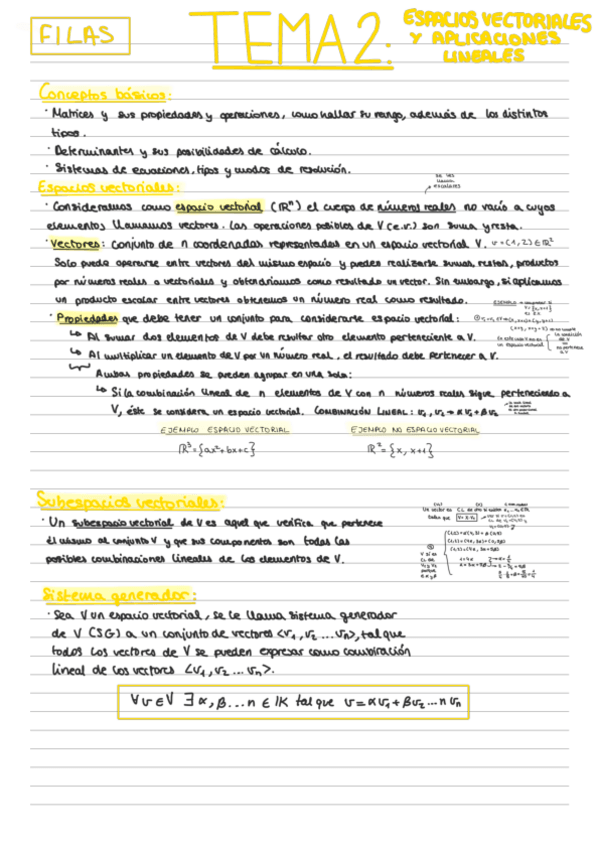 FILAS
TEMA 2:
ESPACIOS VECTORIALES
Y APLICACIONES
LINEALES
Conceptos básicos:
· Matrices y sus propiedades y operaciones, como hallar su rango, además de los distintos
tipos.
· Determinantes y sus posibilidades de cálculo.
· Sistemas de ecuaciones, tipos y modos de resolución.
Espacios vectoriales:
escalares
· Consideramos como espacio vectorial (ℝⁿ) el cuerpo de números reales no vacío a cuyos
elementos llamamos vectores. Las operaciones posibles de V (e.v.) son suma y resta.
· Vectores: Conjunto de n coordenadas representadas en un espacio vectorial V. v=(1,2)∈ℝ²
Solo puede operarse entre vectores del mismo espacio y pueden realizarse sumas, restas, productos
por números reales a vectoriales y obtendríamos como resultado un vector. Sin embargo, si aplicamos
un producto escalar entre vectores obtenemos un número real como resultado.
· Propiedades que debe tener un conjunto para considerarse espacio vectorial:
↳ Al sumar dos elementos de V debe resultar otro elemento perteneciente a V.
↳ Al multiplicar un elemento de V por un número real, el resultado debe pertenecer a V.
Ambas propiedades se pueden agrupar en una sola:
↳ Si la combinación lineal de n elementos de V con n números reales sigue perteneciendo a
V, éste se considera un espacio vectorial. COMBINACIÓN LINEAL: v₁, v₂ → αv₁ + βv₂
EJEMPLO ESPACIO VECTORIAL
EJEMPLO NO ESPACIO VECTORIAL
ℝ³={ax²+bx+c}
ℝ²={x, x+1}
Subespacios vectoriales:
· Un subespacio vectorial de V es aquel que verifica que pertenece
el mismo al conjunto V y que sus componentes son todas las
posibles combinaciones lineales de los elementos de V.
Sistema generador:
· Sea V un espacio vectorial, se le llama sistema generador
de V (SG) a un conjunto de vectores <v₁, v₂ ... vₙ>, tal que
todos los vectores de V se pueden expresar como combinación
lineal de los vectores <v₁, v₂ ... vₙ>.
∀v∈V ∃ α, β ... n ∈ IK tal que v = αv₁ + βv₂ ... n vₙ